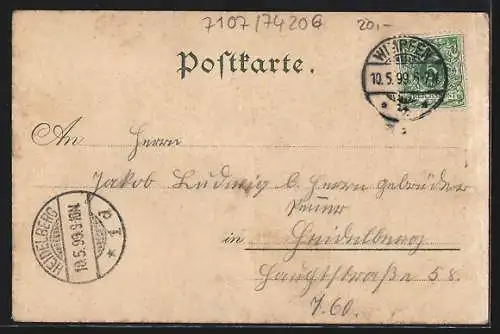 7107/74206 20,-
Postkarte.
WIMPFEN
10.5.99.
An Herrn
Jakob Ludwig b. Herrn Gebrüder
in Heidelberg
Hauptstraße 58.
HEIDELBERG
10.5.99.9-10N.
1.60.